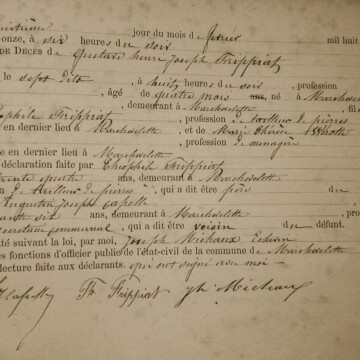 huitième jour du mois de mil huit
onze, à six heures du soir
DE DÉCÈS de Gustave henri Joseph Frippiat
le sept dito, à huit heures du soir, profession
, âgé de quatre mois ans, né à Marchovelette
, demeurant à Marchovelette
Théophile Frippiat, profession de tailleur de pierres
en dernier lieu à Marchovelette, et de Marie Thérèse
, profession de ménagère
e en dernier lieu à Marchovelette
déclaration faite par Théophile Frippiat
trente quatre ans, demeurant à Marchovelette
n de tailleur de pierres, qui a dit être père du
Augustin Joseph Capelle
ante six ans, demeurant à Marchovelette
secrétaire communal, qui a dit être voisin du défunt.
té suivant la loi, par moi, Joseph Michaux Echevin
s fonctions d'officier public de l'état-civil de la commune de Marchovelette
lecture faite aux déclarants. qui ont signé avec moi —
Th Frippiat Jh Michaux